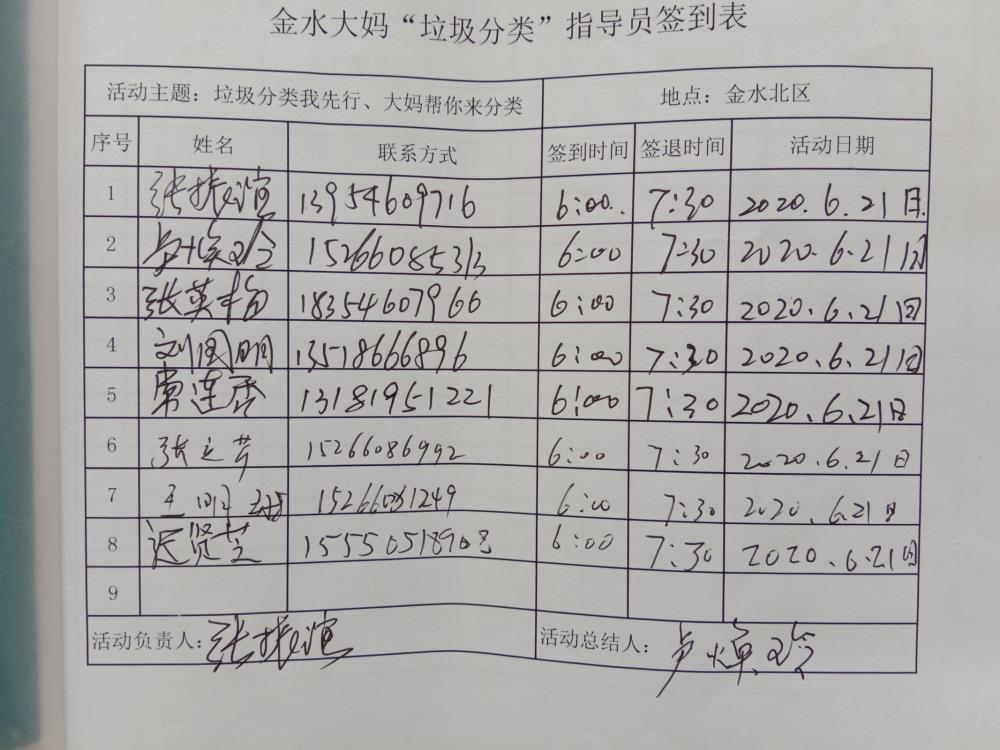 金水大妈“垃圾分类”指导员签到表
活动主题：垃圾分类我先行、大妈帮你来分类 地点：金水北区
序号 姓名 联系方式 签到时间 签退时间 活动日期
1 张振谊 13954609716 6:00 7:30 2020.6.21日
2 15266085313 6:00 7:30 2020.6.21日
3 张英梅 18354607966 6:00 7:30 2020.6.21日
4 刘国明 13518666896 6:00 7:30 2020.6.21日
5 常莲香 13181951221 6:00 7:30 2020.6.21日
6 张文芳 15266086992 6:00 7:30 2020.6.21日
7 王明 6:00 7:30 2020.6.21日
8 迟贤芝 15550518908 6:00 7:30 2020.6.21日
9
活动负责人：张振谊 活动总结人：